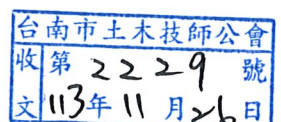 台南市土木技師公會
收文 第2229號
113年11月26日